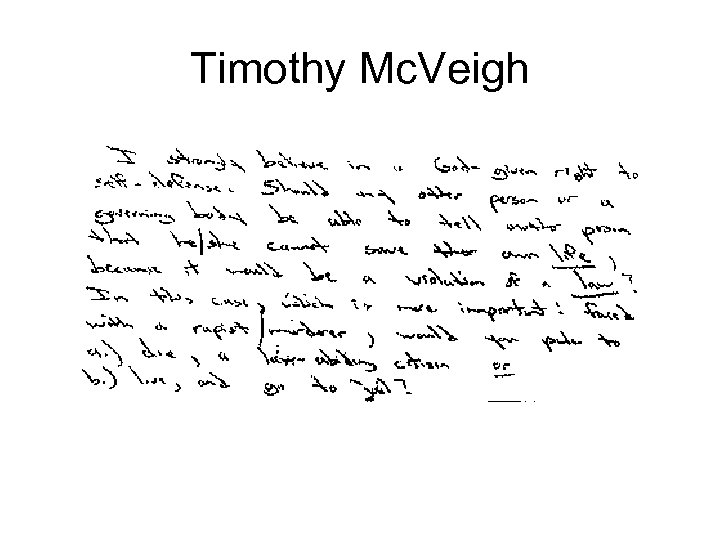 Timothy McVeigh
I strongly believe in a God-given right to
self-defense. Should any other person or a
governing body be able to tell a person
that he/she cannot save their own life,
because it would be a violation of a law?
In this case, which is more important: faced
with a rapist/murderer, would you prefer to
a.) die, a law abiding citizen or
b.) live, and go to jail?